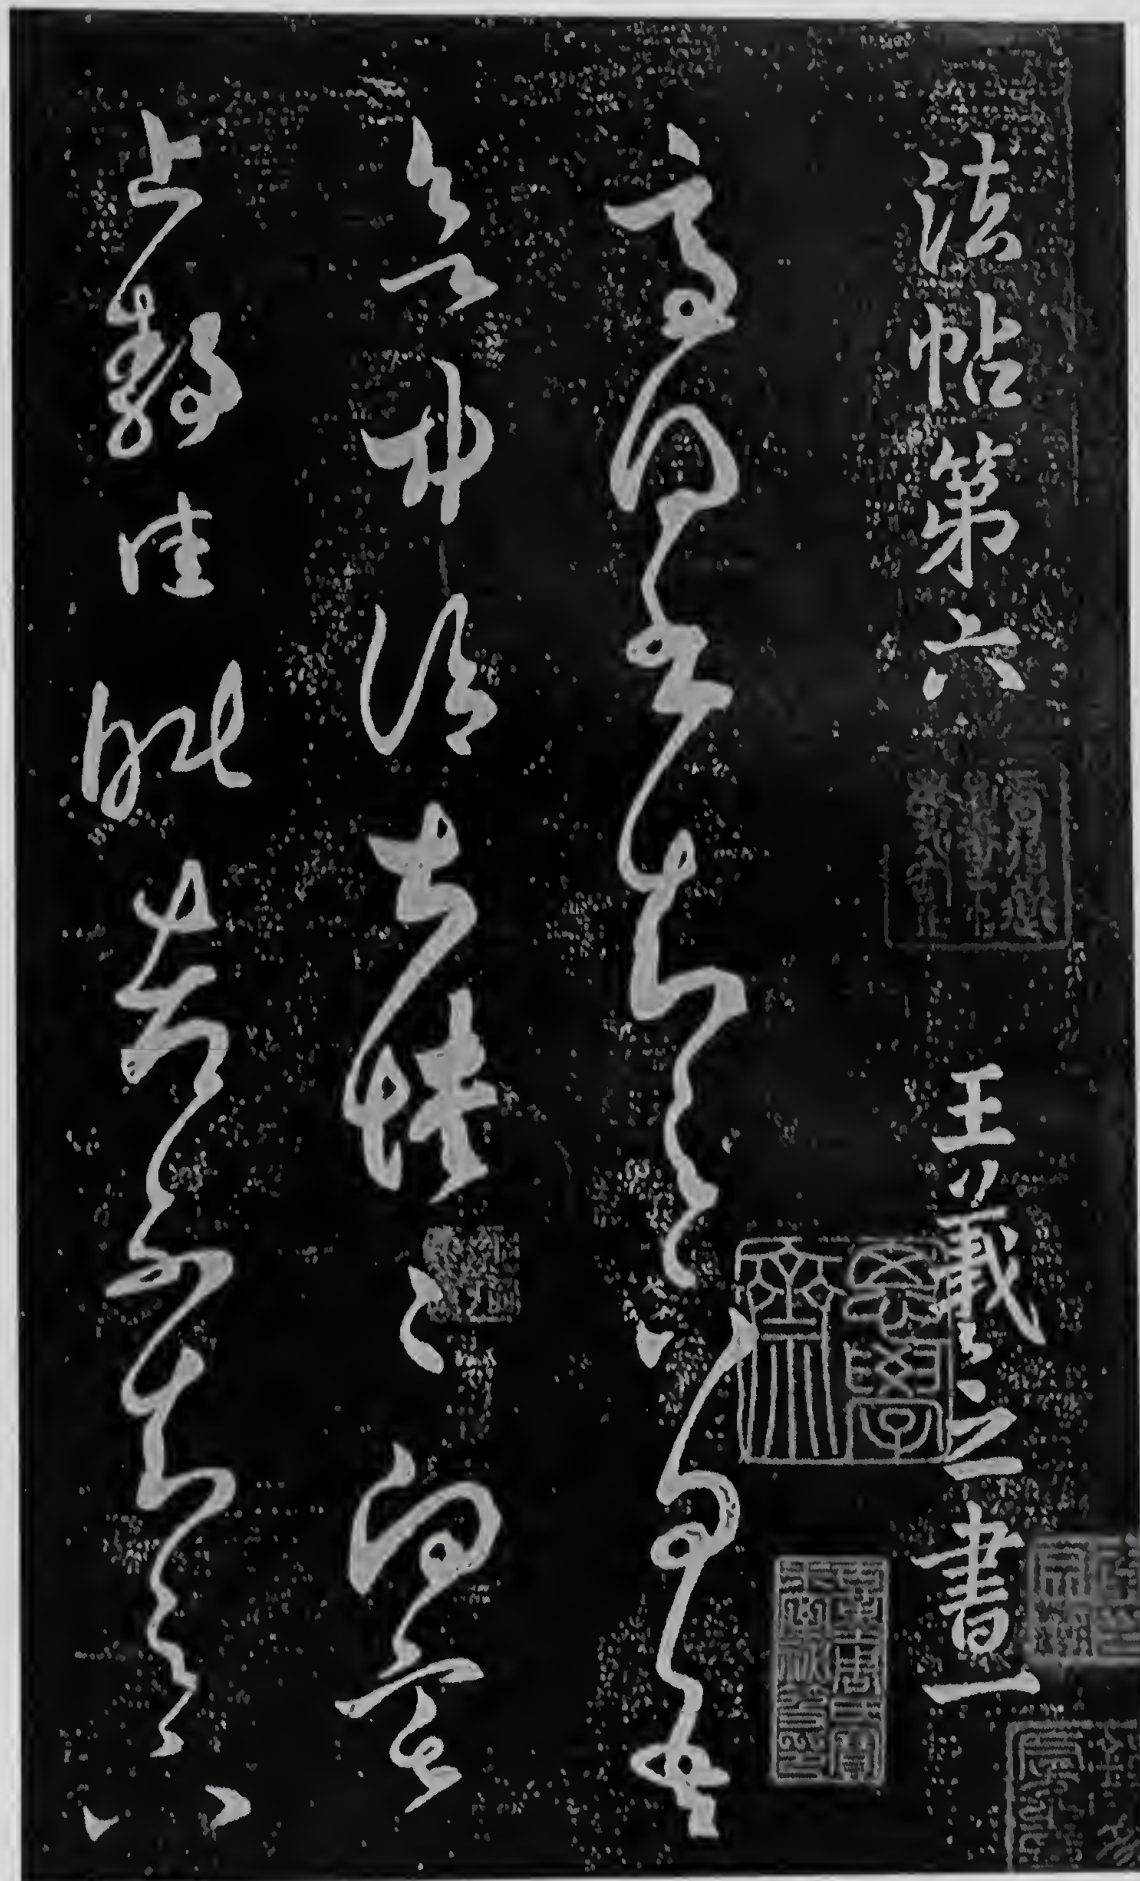 法帖第六 王羲之書一
適得書知足下問吾
欲中冷甚憒〻向宅
上靜佳眠都不知足下